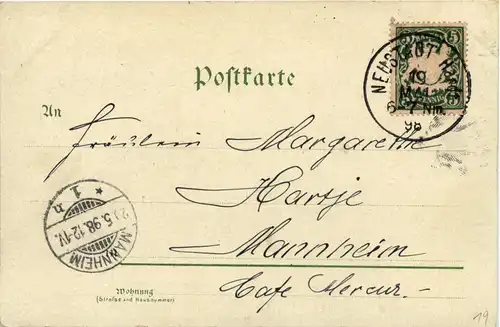 Postkarte
5 5
NEUSTADT
19
MAI
6-7 Nm.
98
An
Fräulein Margarethe
Hartje
Mannheim
Cafe Mercur.-
* 1 n
5.98.12-1V.
MANNHEIM
Wohnung
(Straße und Hausnummer)
19